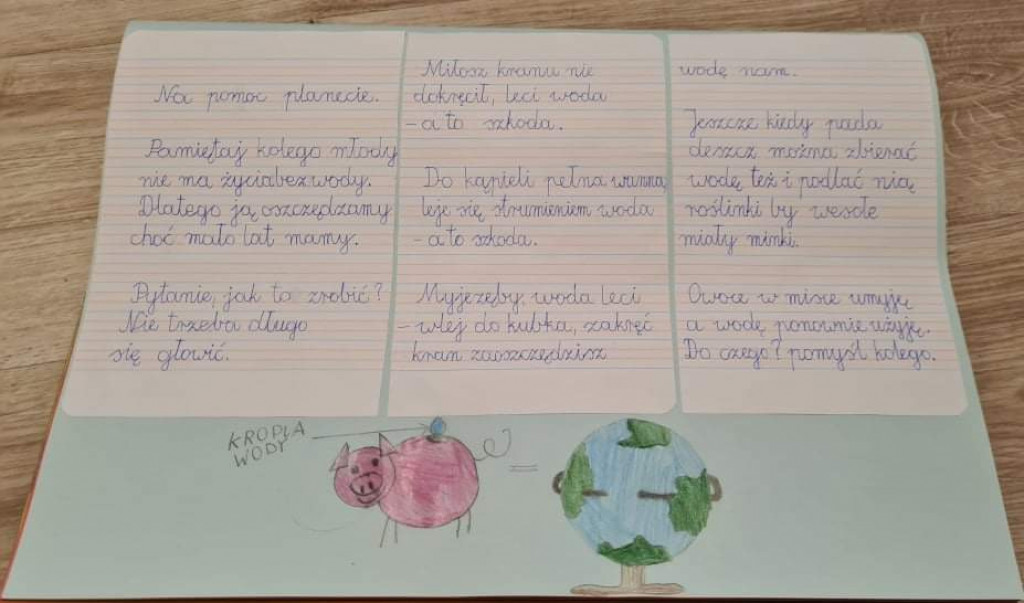 Na pomoc planecie.
Pamiętaj kolego młody
nie ma życia bez wody.
Dlatego ją oszczędzamy
choć mało lat mamy.
Pytanie, jak to zrobić?
Nie trzeba długo
się głowić.
Miłosz kranu nie
dokręcił, leci woda
- a to szkoda.
Do kąpieli pełna wanna,
leje się strumieniem woda
- a to szkoda.
Myjezęby, woda leci
- wlej do kubka, zakręć
kran zaoszczędzisz
wodę nam.
Jeszcze kiedy pada
deszcz można zbierać
wodę też i podlać nią
roślinki by wesołe
miały minki.
Owoce w misce umyję
a wodę ponownie użyję.
Do czego? pomyśl kolego.
KROPLA
WODY
=